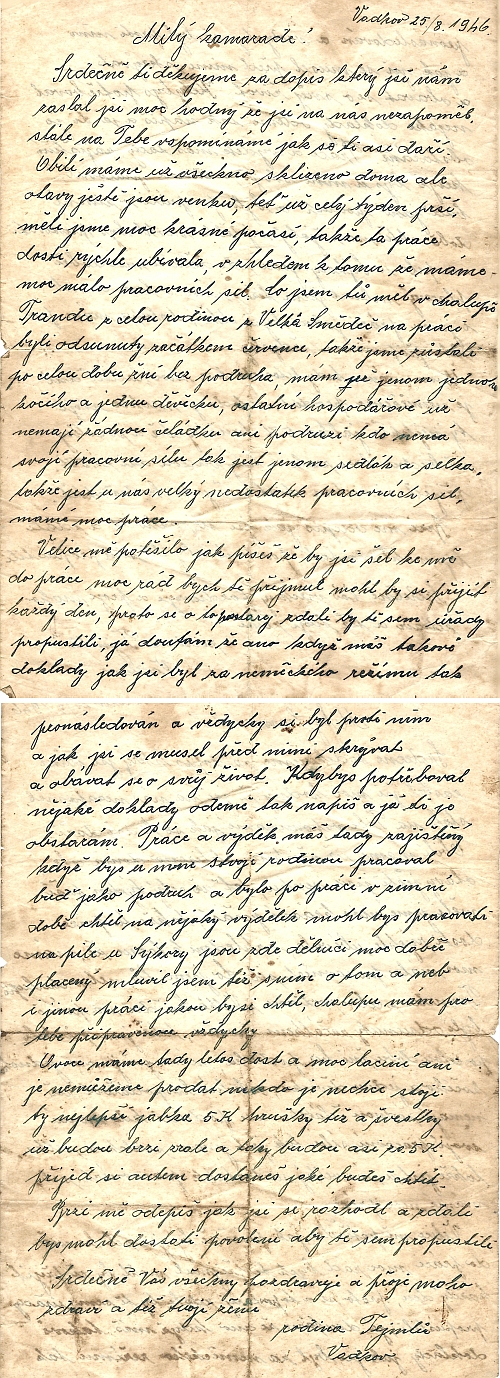 Vadkov 25/8. 1946.
Milý kamaráde!
Srdečně ti děkujeme za dopis který jsi nám
zaslal jsi moc hodný že jsi na nás nezapoměl,
stále na Tebe vspomínáme jak se ti asi daří.
Obilí máme už všechno sklizeno doma ale
otavy ještě jsou venku, teť už celý týden prší,
měli jsme moc krásné počasí, takže ta práce
dosti rychle ubívala, vzhledem k tomu že máme
moc málo pracovních sil. Co jsem tů měl v chalupě
z celou rodinou z Velká Směděč na práci
byli odsunuty začátkem července, takže jsme zůstali
po celou dobu žní bez podruha, mám jen jednoho
kočího a jednu děvečku, ostatní hospodářové už
nemají žádnou čeládku ani podruzi kdo nemá
svojí pracovní sílu tak jest jenom sedlák a selka,
takže jest u nás velký nedostatek pracovních sil,
máme moc práce.
Velice mě potěšilo jak píšeš že by jsi šel ke mě
do práce moc rád bych tě přijmul mohl by se přijít
každý den, proto se o to postarej zdali by tě sem úřady
propustili, já doufám že ano když máš takové
doklady jak jsi byl za německého režimu tak
peonásledován a vždycky si byl proti nim
a jak jsi se musel před nimi skrývat
a obávat se o svůj život. Kdybys potřeboval
nějaké doklady odemě tak napiš a já ti je
obstarám. Práce a výděk máš tady zajištěný
když bys u mne svojí rodinou pracoval
buď jako podruh a bylo po práci v zimní
době chtěl na nějaký výdělek mohl bys pracovati
na pile u Sýkory jsou zde dělníci moc dobře
placený mluvil jsem též s ním o tom a neb
i jinou práci jakou bysi chtěl, chalupu mám pro
tebe připravenou vždycky
Ovoce máme tady letos dost a moc laciné ani
je nemůžeme prodat nikdo je nechce stojí
ty nejlepší jabka 5 K hrušky též a švestky
už budou brzi zralé a taky budou asi za 5 K.
přijeď si autem dostaneš jaké budeš chtít.
Brzi mě odepiš jak jsi se rozhodl a zdali
bys mohl dostati povolení aby tě sem propustili
Srdečně Vás všechny pozdravuje a přeje moho
zdraví a též tvojí ženě
rodina Tejmlů
Vadkov